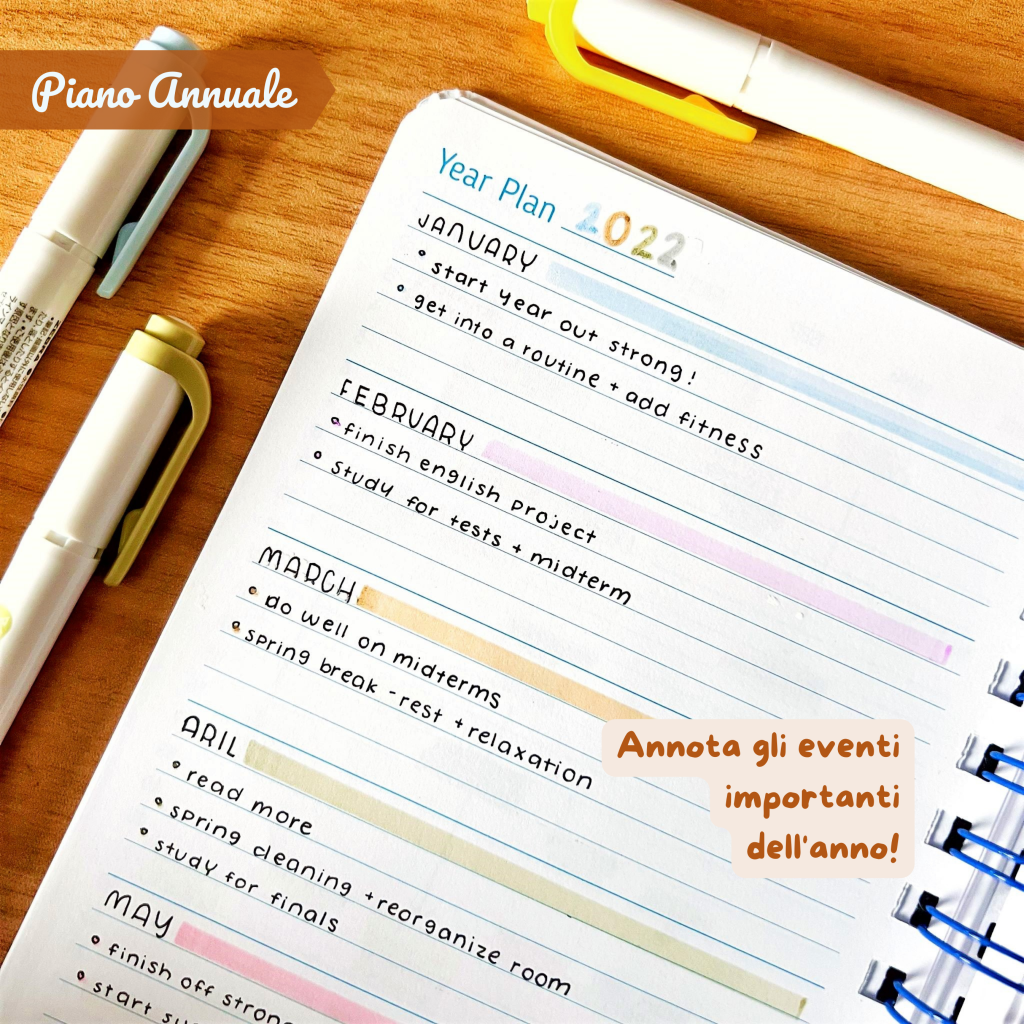 Piano Annuale
Year Plan 2022
JANUARY
start year out strong!
get into a routine + add fitness
FEBRUARY
finish english project
study for tests + midterm
MARCH
do well on midterms
spring break - rest + relaxation
ARIL
read more
spring cleaning + reorganize room
study for finals
MAY
finish off
start
Annota gli eventi
importanti
dell'anno!